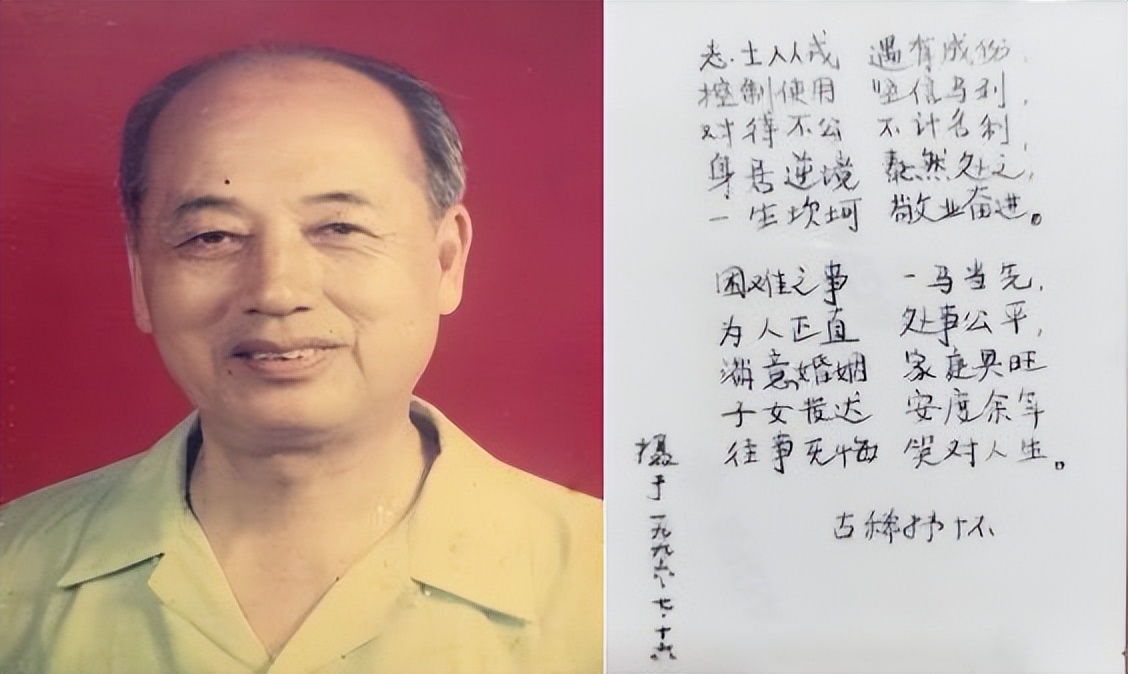 志士入戎 遇有成份,
控制使用 坚信马列,
对待不公 不计名利,
身居逆境 泰然处之,
一生坎坷 敬业奋进。
困难之事 一马当先,
为人正直 处事公平,
满意婚姻 家庭兴旺
子女发达 安度余年
往事无悔 笑对人生。
古稀抒怀
摄于一九九六·七·十六